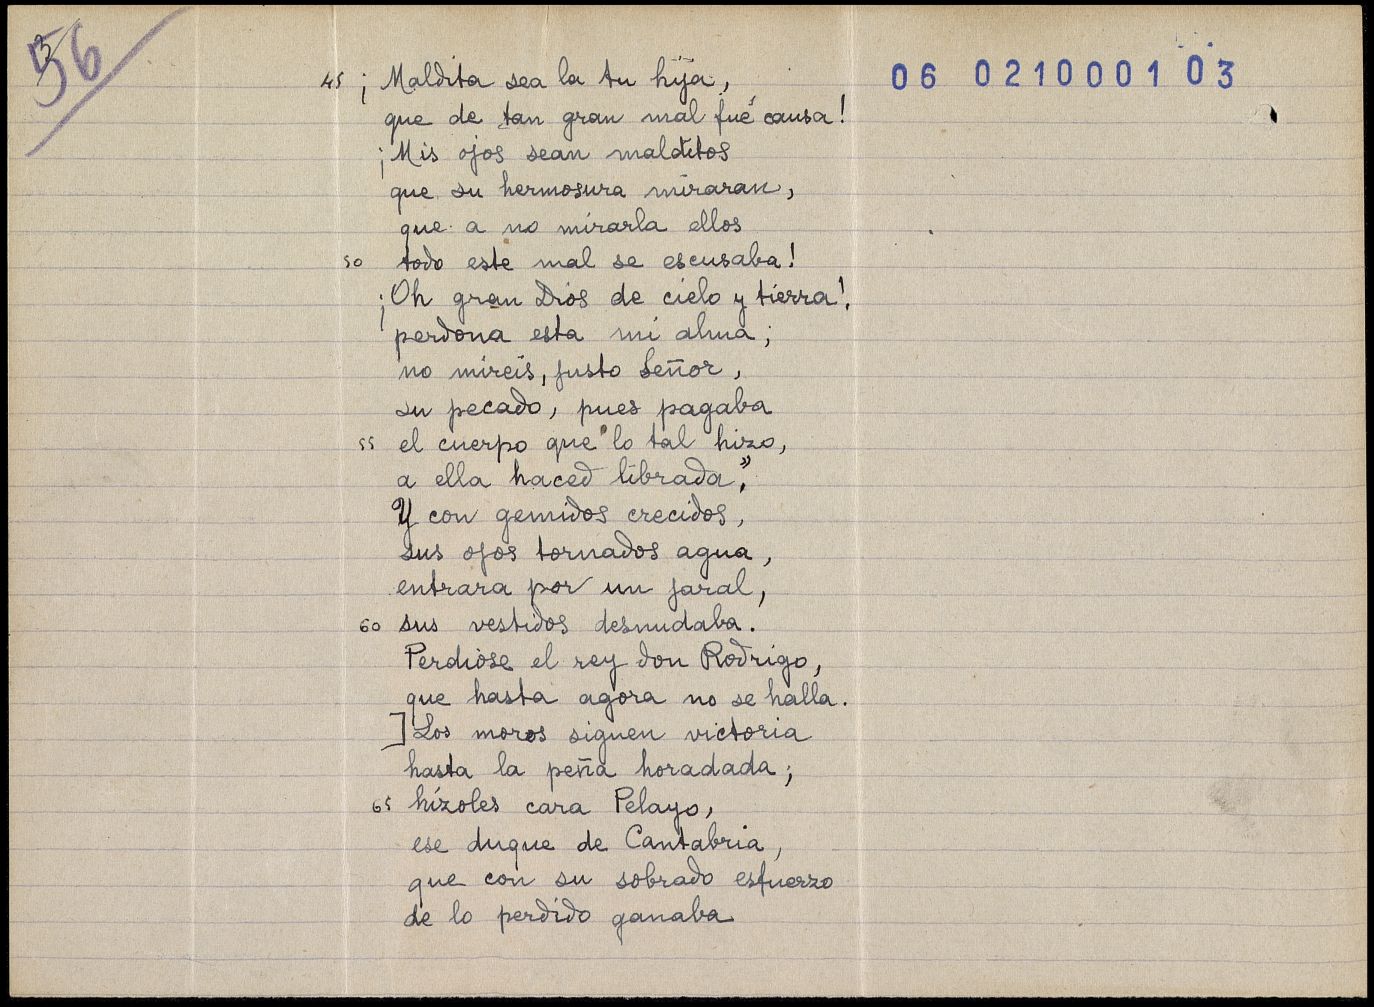 56
3
06 0210001 03
45 ¡Maldita sea la tu hija,
que de tan gran mal fué causa!
¡Mis ojos sean malditos
que su hermosura miraran,
que a no mirarla ellos
50 todo este mal se escusaba!
¡Oh gran Dios de cielo y tierra!,
perdona esta mi alma;
no mireis, justo Señor,
su pecado, pues pagaba
55 el cuerpo que lo tal hizo,
a ella haced librada.”
Y con gemidos crecidos,
sus ojos tornados agua,
entrara por un jaral,
60 sus vestidos desnudaba.
Perdióse el rey don Rodrigo,
que hasta agora no se halla.
] Los moros siguen victoria
hasta la peña horadada;
65 hízoles cara Pelayo,
ese duque de Cantabria,
que con su sobrado esfuerzo
de lo perdido ganaba